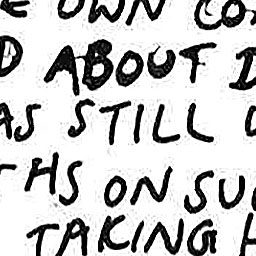 OWN CO
ABOUT
AS STILL
THS ON SU
TAKING